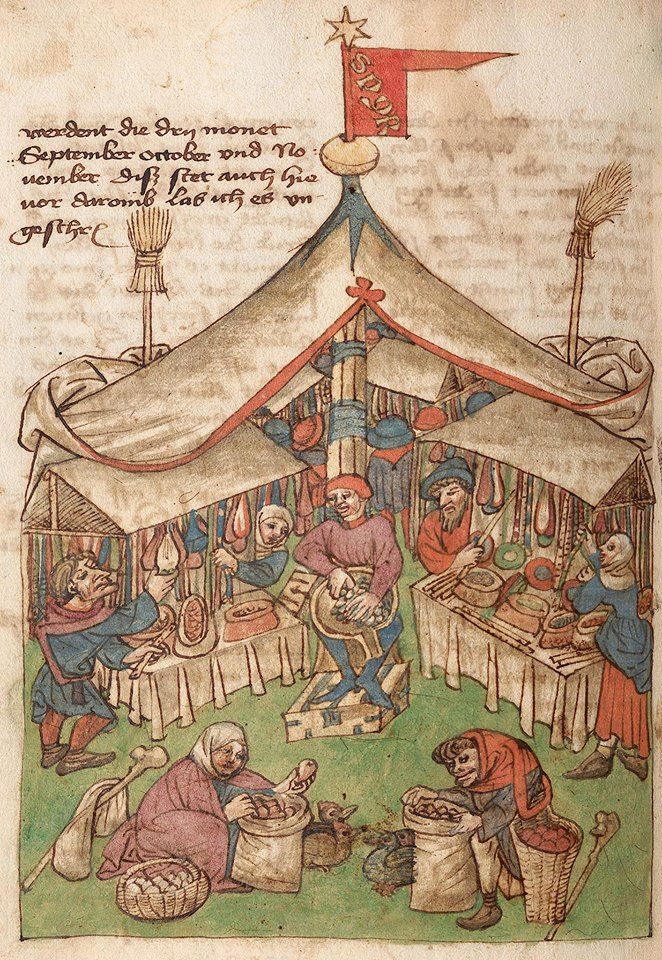 SPQR
werdent die drij monet
September october vnd No
vember disz stet auch hie
vor daromb las ich es vn
geschr